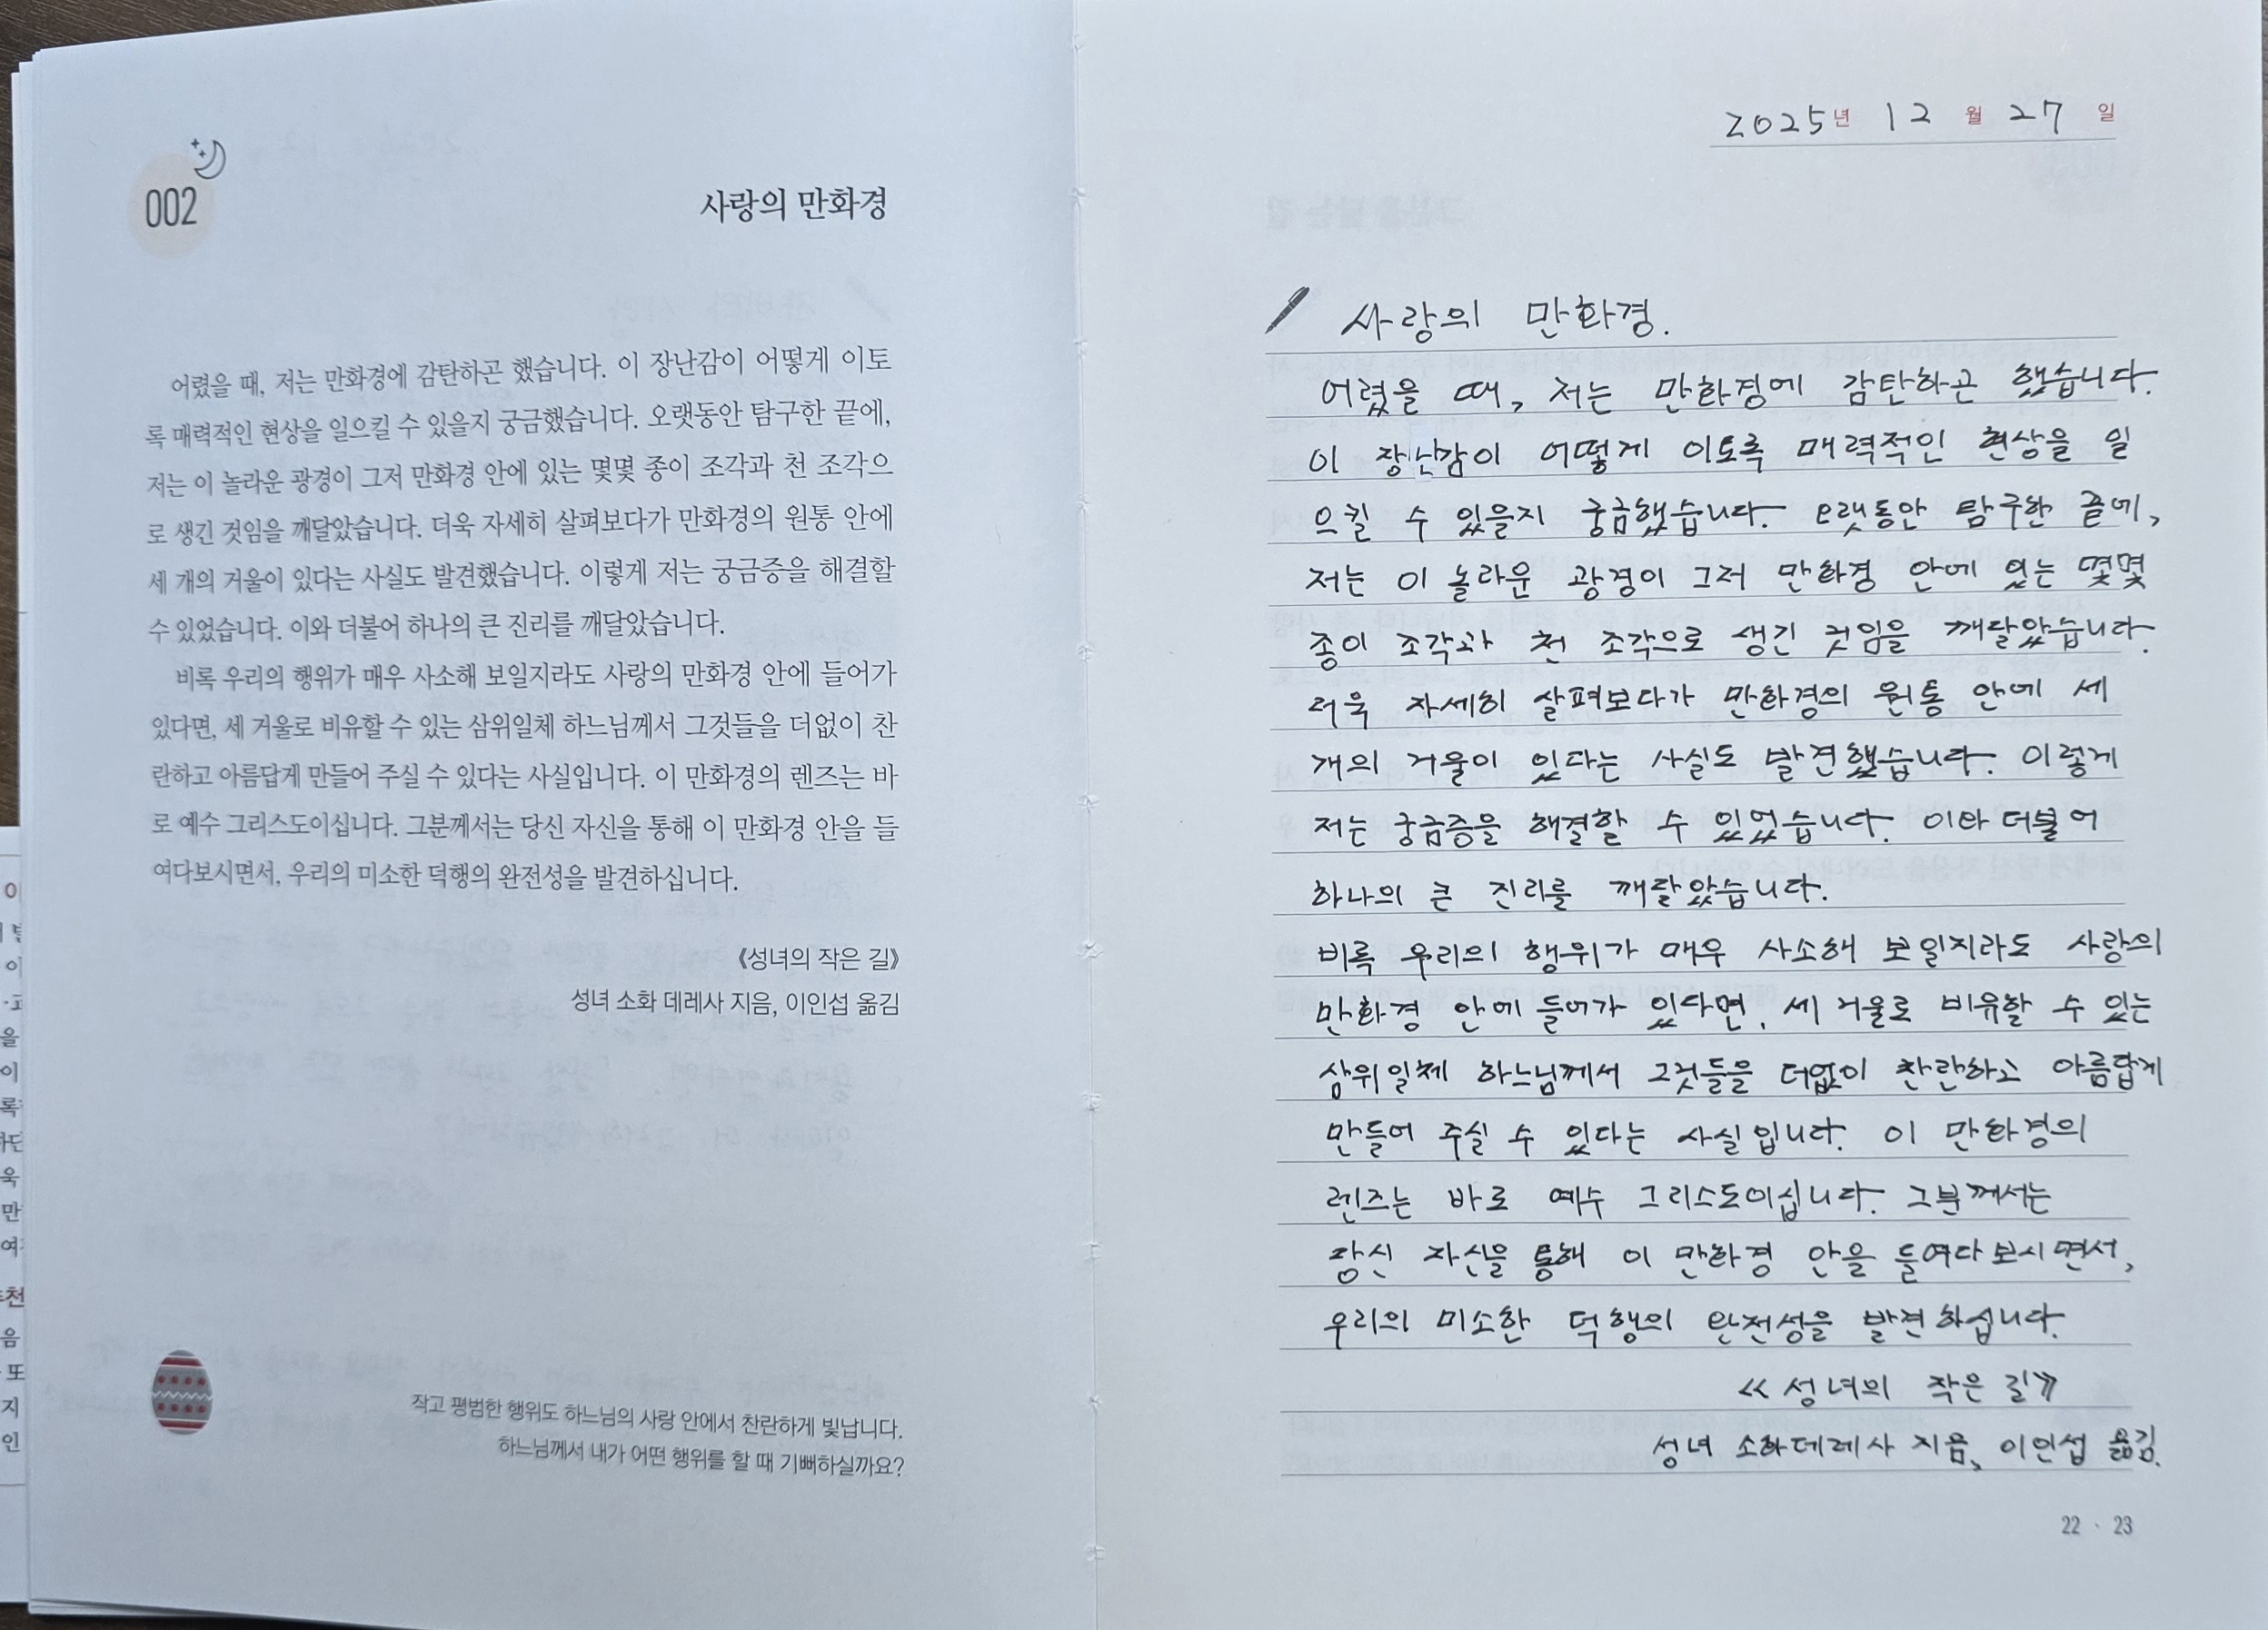 002
사랑의 만화경
어렸을 때, 저는 만화경에 감탄하곤 했습니다. 이 장난감이 어떻게 이토
록 매력적인 현상을 일으킬 수 있을지 궁금했습니다. 오랫동안 탐구한 끝에,
저는 이 놀라운 광경이 그저 만화경 안에 있는 몇몇 종이 조각과 천 조각으
로 생긴 것임을 깨달았습니다. 더욱 자세히 살펴보다가 만화경의 원통 안에
세 개의 거울이 있다는 사실도 발견했습니다. 이렇게 저는 궁금증을 해결할
수 있었습니다. 이와 더불어 하나의 큰 진리를 깨달았습니다.
비록 우리의 행위가 매우 사소해 보일지라도 사랑의 만화경 안에 들어가
있다면, 세 거울로 비유할 수 있는 삼위일체 하느님께서 그것들을 더없이 찬
란하고 아름답게 만들어 주실 수 있다는 사실입니다. 이 만화경의 렌즈는 바
로 예수 그리스도이십니다. 그분께서는 당신 자신을 통해 이 만화경 안을 들
여다보시면서, 우리의 미소한 덕행의 완전성을 발견하십니다.
《성녀의 작은 길》
성녀 소화 데레사 지음, 이인섭 옮김
작고 평범한 행위도 하느님의 사랑 안에서 찬란하게 빛납니다.
하느님께서 내가 어떤 행위를 할 때 기뻐하실까요?
2025년 12월 27일
사랑의 만화경.
어렸을 때, 저는 만화경에 감탄하곤 했습니다.
이 장난감이 어떻게 이토록 매력적인 현상을 일
으킬 수 있을지 궁금했습니다. 오랫동안 탐구한 끝에,
저는 이 놀라운 광경이 그저 만화경 안에 있는 몇몇
종이 조각과 천 조각으로 생긴 것임을 깨달았습니다.
더욱 자세히 살펴보다가 만화경의 원통 안에 세
개의 거울이 있다는 사실도 발견했습니다. 이렇게
저는 궁금증을 해결할 수 있었습니다. 이와 더불어
하나의 큰 진리를 깨달았습니다.
비록 우리의 행위가 매우 사소해 보일지라도 사랑의
만화경 안에 들어가 있다면, 세 거울로 비유할 수 있는
삼위일체 하느님께서 그것들을 더없이 찬란하고 아름답게
만들어 주실 수 있다는 사실입니다. 이 만화경의
렌즈는 바로 예수 그리스도이십니다. 그분께서는
당신 자신을 통해 이 만화경 안을 들여다보시면서,
우리의 미소한 덕행의 완전성을 발견하십니다.
《성녀의 작은 길》
성녀 소화데레사 지음, 이인섭 옮김.
22 · 23